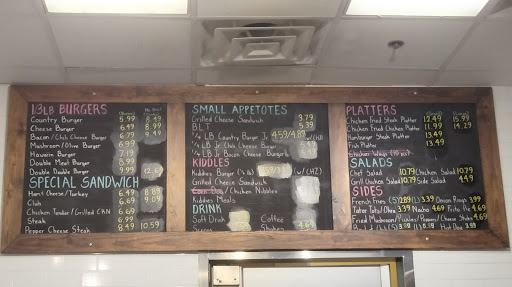 1/3 LB BURGERS
Country Burger 5.99 8.49
Cheese Burger 6.49 8.99
Bacon / Chili Cheese Burger 6.79 9.49
Mushroom / Olive Burger 6.99
Hawaiin Burger 7.19
Double Meat Burger 9.59
Double Double Burger 9.99
SPECIAL SANDWICH
Ham & Cheese / Turkey 6.49 8.89
Club 6.49 9.09
Chicken Tender / Grilled CKN 6.69
Steak 6.99
Pepper Cheese Steak 8.49 10.59
SMALL APPETOTES
Grilled Cheese Sandwich 3.79
BLT 5.39
1/4 LB Country Burger Jr. 4.59/4.89
1/4 LB Jr Chili Cheese Burg
1/4 LB Jr Bacon Cheese Burger
KIDDIES
Kiddies Burger (1/4 lb) (w/CHZ)
Grilled Cheese Sandwich
/ Chicken Nibblers
Kiddies Meals
DRINK
Soft Drink Coffee
Shakes 4.69
PLATTERS
Chicken Fried Steak Platter 12.49 15.99
Chicken Fried Chicken Platter 11.99 14.29
Hamburger Steak Platter 13.49
Fish Platter 13.49
SALADS
Chef Salad 10.79 Chicken Salad 10.79
Grill Chicken Salad 10.79 Side Salad 4.49
SIDES
French Fries (S) 2.89 (L) 3.99 Onion Rings 3.99
Tater Tots / Okra 3.99 Nacho 4.69 Frito Pie 4.69
Fried Mushroom / Pickles / Poppers / Cheese Sticks 4.69
Hot Dog 3.99